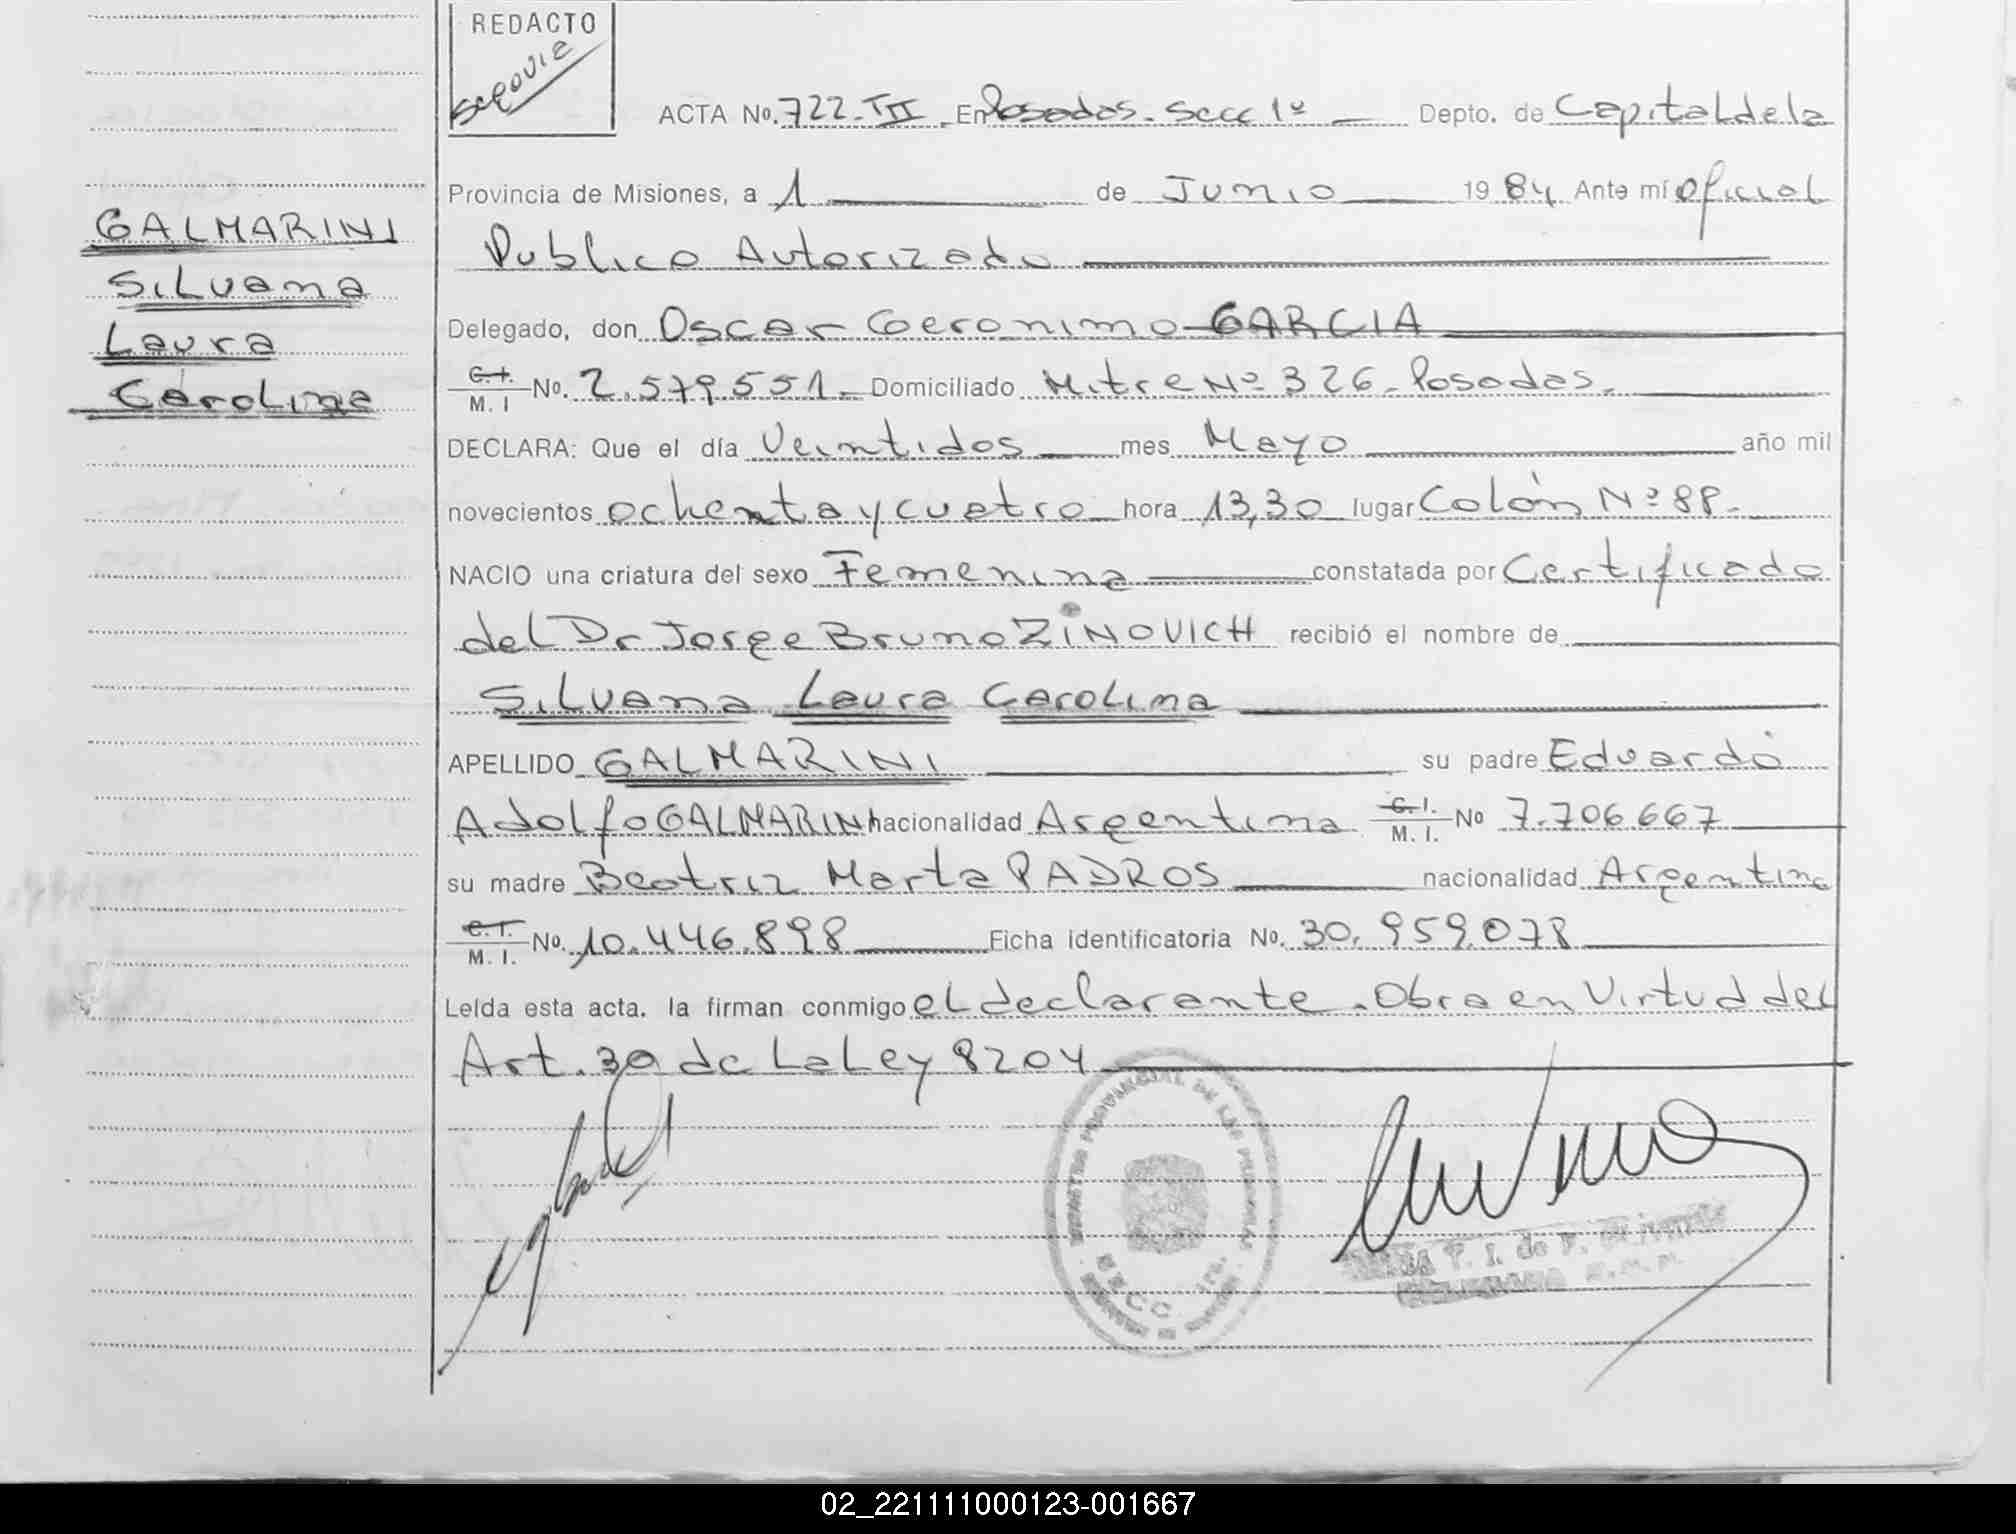 REDACTO
Segovia
ACTA No. 722-III En Posadas. Secc 1º Depto. de Capital de la
Provincia de Misiones, a 1 de Junio 1984 Ante mí Oficial
Publico Autorizado
GALMARINI
Silvana
Laura
Carolina
Delegado, don Oscar Geronimo GARCIA
C.I. M. I No. 2.579.551. Domiciliado Mitre Nº 326. Posadas.
DECLARA: Que el día Veintidos mes Mayo año mil
novecientos ochenta y cuatro hora 13,30 lugar Colón Nº 88.
NACIO una criatura del sexo Femenina constatada por Certificado
del Dr Jorge Bruno ZINOVICH recibió el nombre de
Silvana Laura Carolina
APELLIDO GALMARINI su padre Eduardo
Adolfo GALMARINI nacionalidad Argentina C.I. M. I. No 7.706.667
su madre Beatriz Marta PADROS nacionalidad Argentina
C.I. M. I. No. 10.446.898 Ficha identificatoria No. 30.959.078
Leída esta acta. la firman conmigo el declarante. Obra en Virtud del
Art. 30 de La Ley 8204
REGISTRO PROVINCIAL DE LAS PERSONAS
02_221111000123-001667